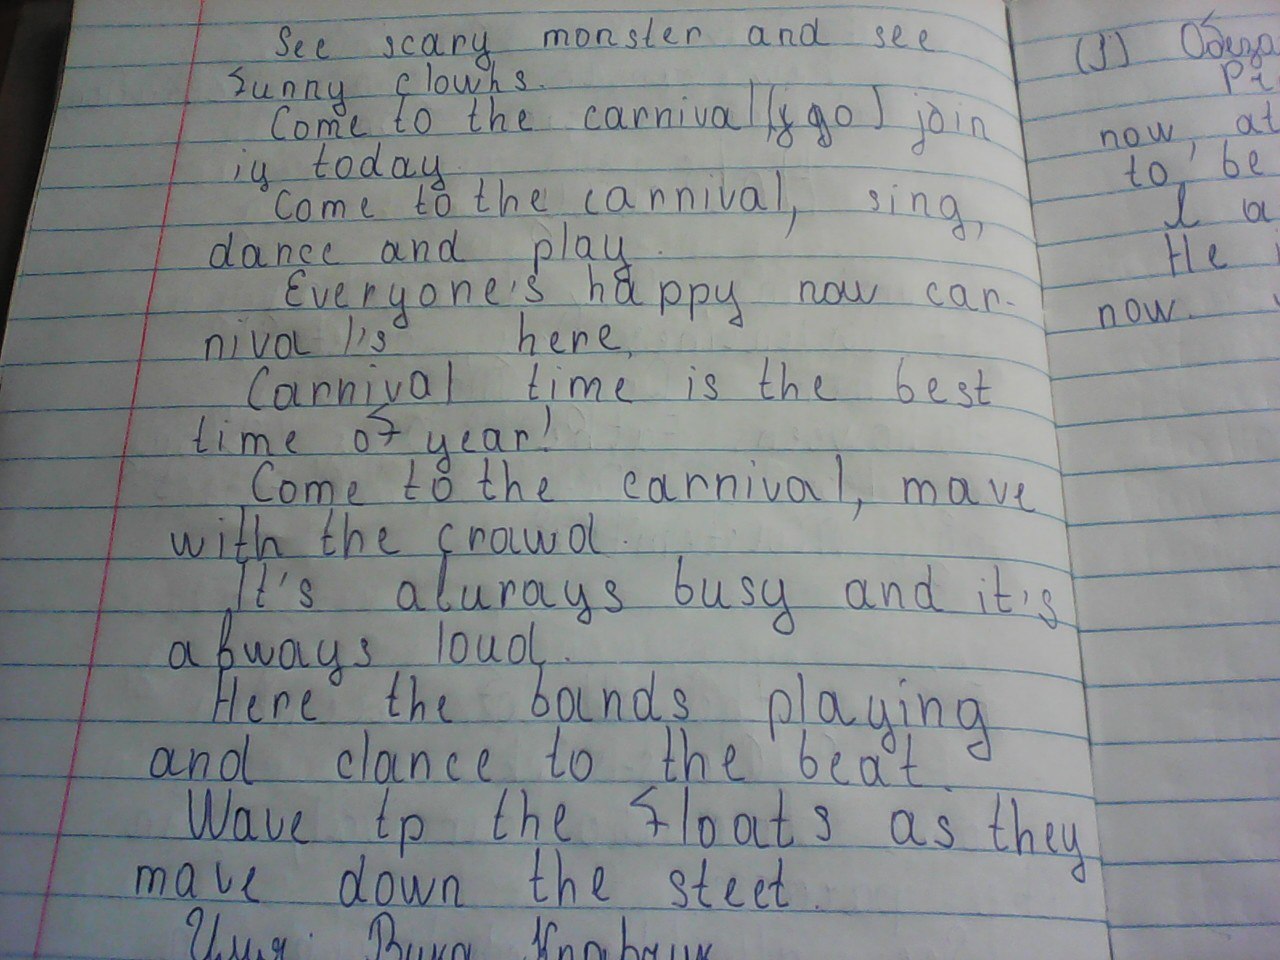 See scary monster and see
funny clowns.
Come to the carnival (y go) join
in today.
Come to the carnival, sing,
dance and play.
Everyone's happy now car-
nival's here.
Carnival time is the best
time of year!
Come to the carnival, mave
with the crawd.
It's alurays busy and it's
always loud.
Here the bands playing
and dance to the beat.
Wave tp the floats as they
mave down the steet.
(J)
now, at
to be
I a
He i
now.